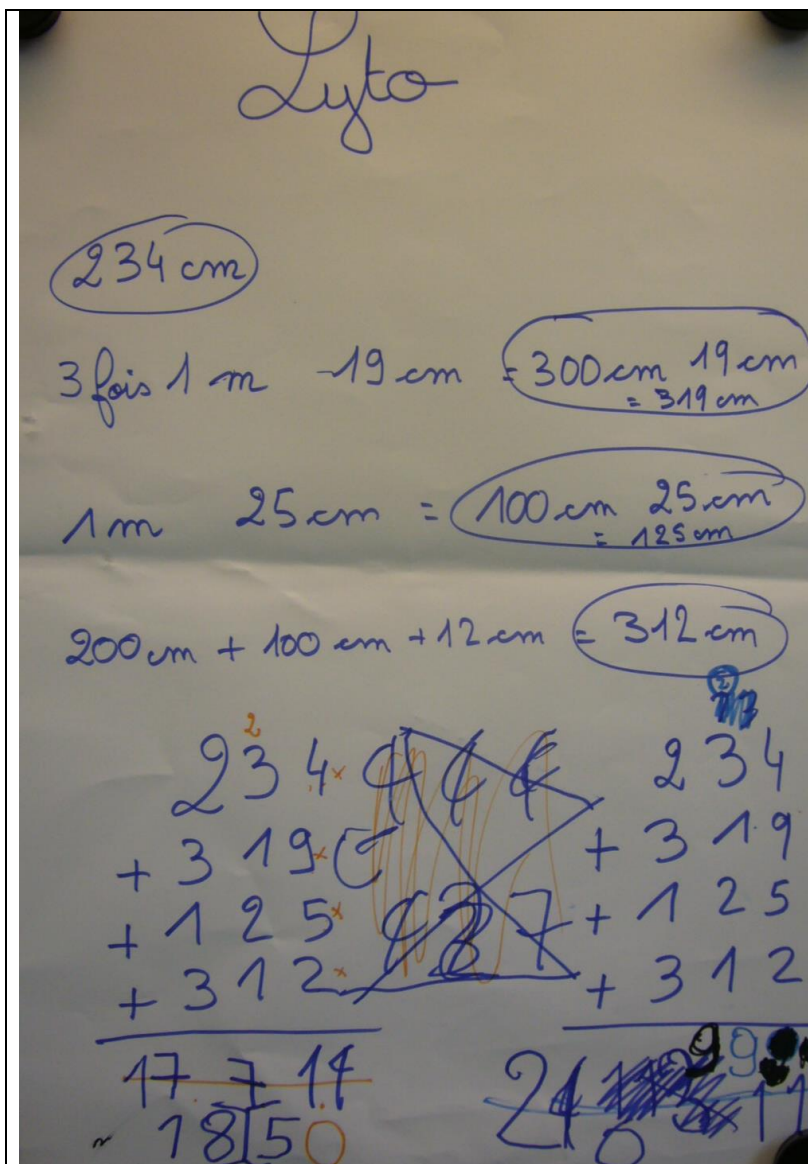 Lyto
234 cm
3 fois 1 m 19 cm = 300 cm 19 cm
= 319 cm
1 m 25 cm = 100 cm 25 cm
= 125 cm
200 cm + 100 cm + 12 cm = 312 cm
2
234
+ 319
+ 125
+ 312
17 7 14
18150
2
234
+ 319
+ 125
+ 312